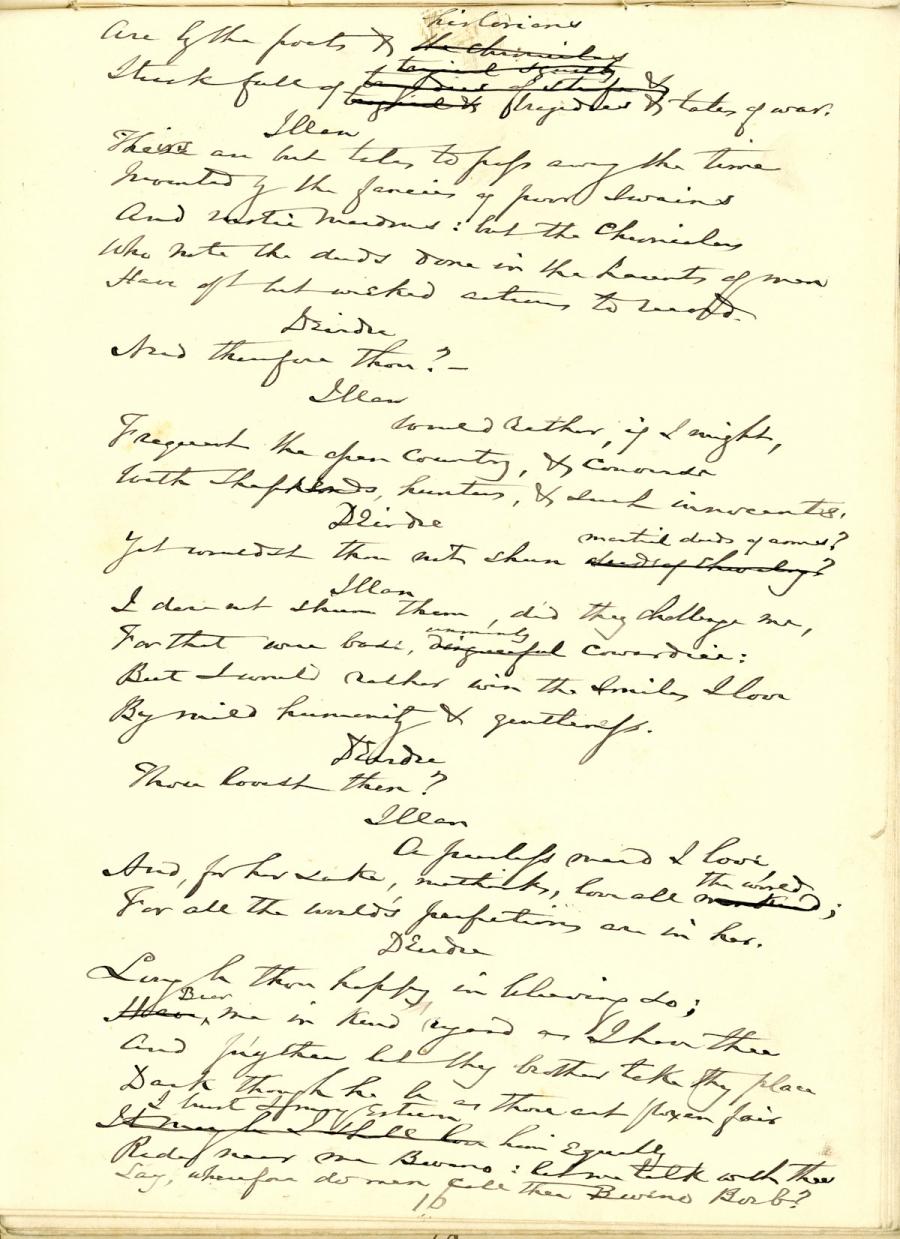 historians
Are by the poets & the chroniclers
Stuck full of tragedies & tales of war.
Illan
Theirs are but tales to pass away the time
Invented by the fancies of poor swains
And rustic maidens: but the Chroniclers
Who note the deeds done in the haunts of men
Have oft but wicked actions to record.
Deirdre
And therefore thou? —
Illan
Would rather, if I might,
Frequent the open country, & converse
With Shepherds, hunters, & such innocents.
Deirdre
martial deeds of arms?
Yet wouldst thou not shun deeds of Chivalry?
Illan
I dare not shun them, did they challenge me,
unmanly
For that were base, disgraceful cowardice:
But I would rather win the smiles I love
By mild humanity & gentleness.
Deirdre
Thou lovest then?
Illan
A peerless maid I love,
the world
And, for her sake, methinks, love all mankind;
For all the world's perfections are in her.
Deirdre
Long be thou happy in believing so;
Bear
Have, me in kind regard as I have thee
And prythee let thy brother take thy place
Dark though he be as thou art flaxen fair
I trust my Esteem
It may be I shall love him Equally
Ride near me Buino: let me talk with thee
Say, wherefore do men call thee Buino Borb?
16